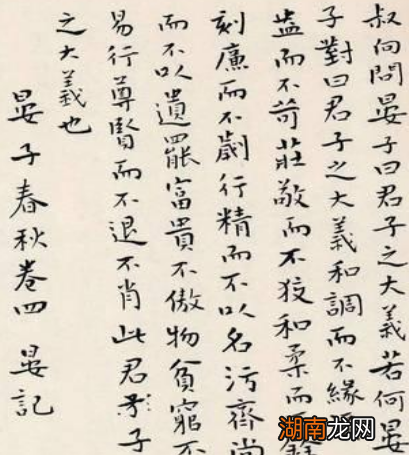 叔向問晏子曰君子之大義若何晏
子對曰君子之大義和調而不緣
盎而不苛莊敬而不狡和柔而不銓
刻廉而不劌行精而不以名污齊尚
而不以遺罷富貴不傲物貧窮不
易行尊賢而不退不肖此君子
之大義也
晏子春秋卷四 晏記
湖南龙网